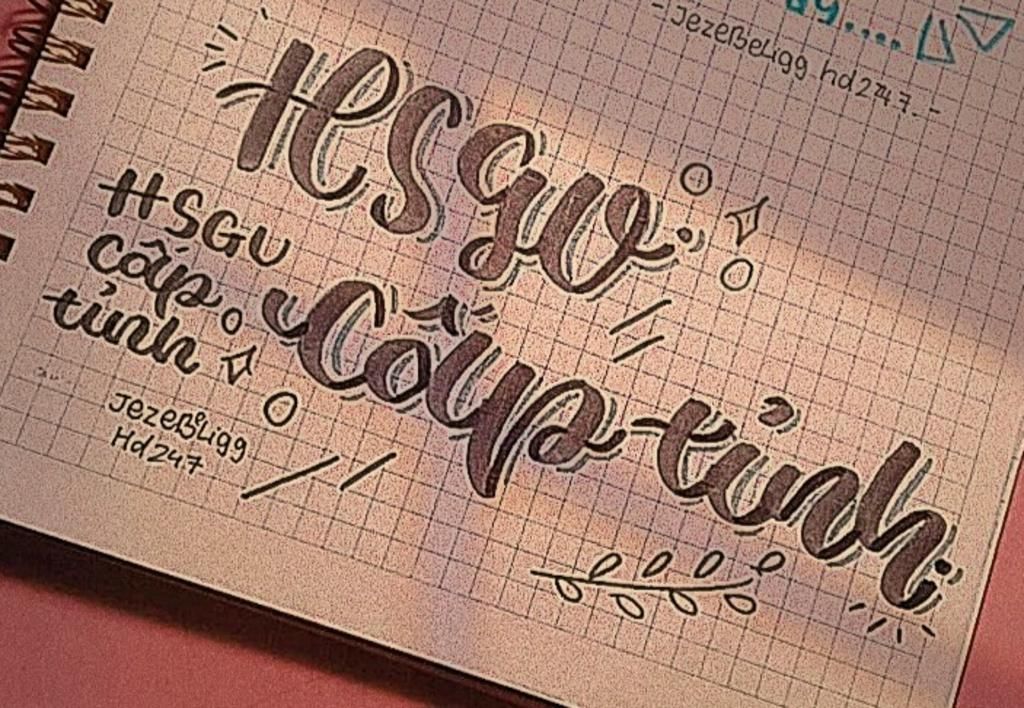 - JezeBeLigg hd247.-
HSGU
Cấp tỉnh
HSGU
Cấp
tỉnh
JezeBeLigg
Hd247